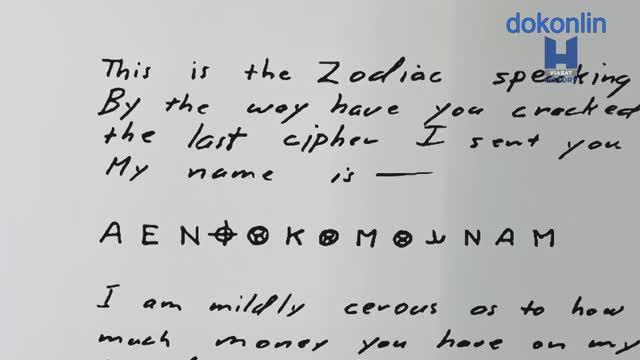 dokonlin
H
VIASAT
HISTORY
This is the Zodiac speaking
By the way have you cracked
the last cipher I sent you
My name is —
A E N ⌖ ⊗ K ⊗ M ⊗ ⅃ N A M
I am mildly cerous as to how
much money you have on my